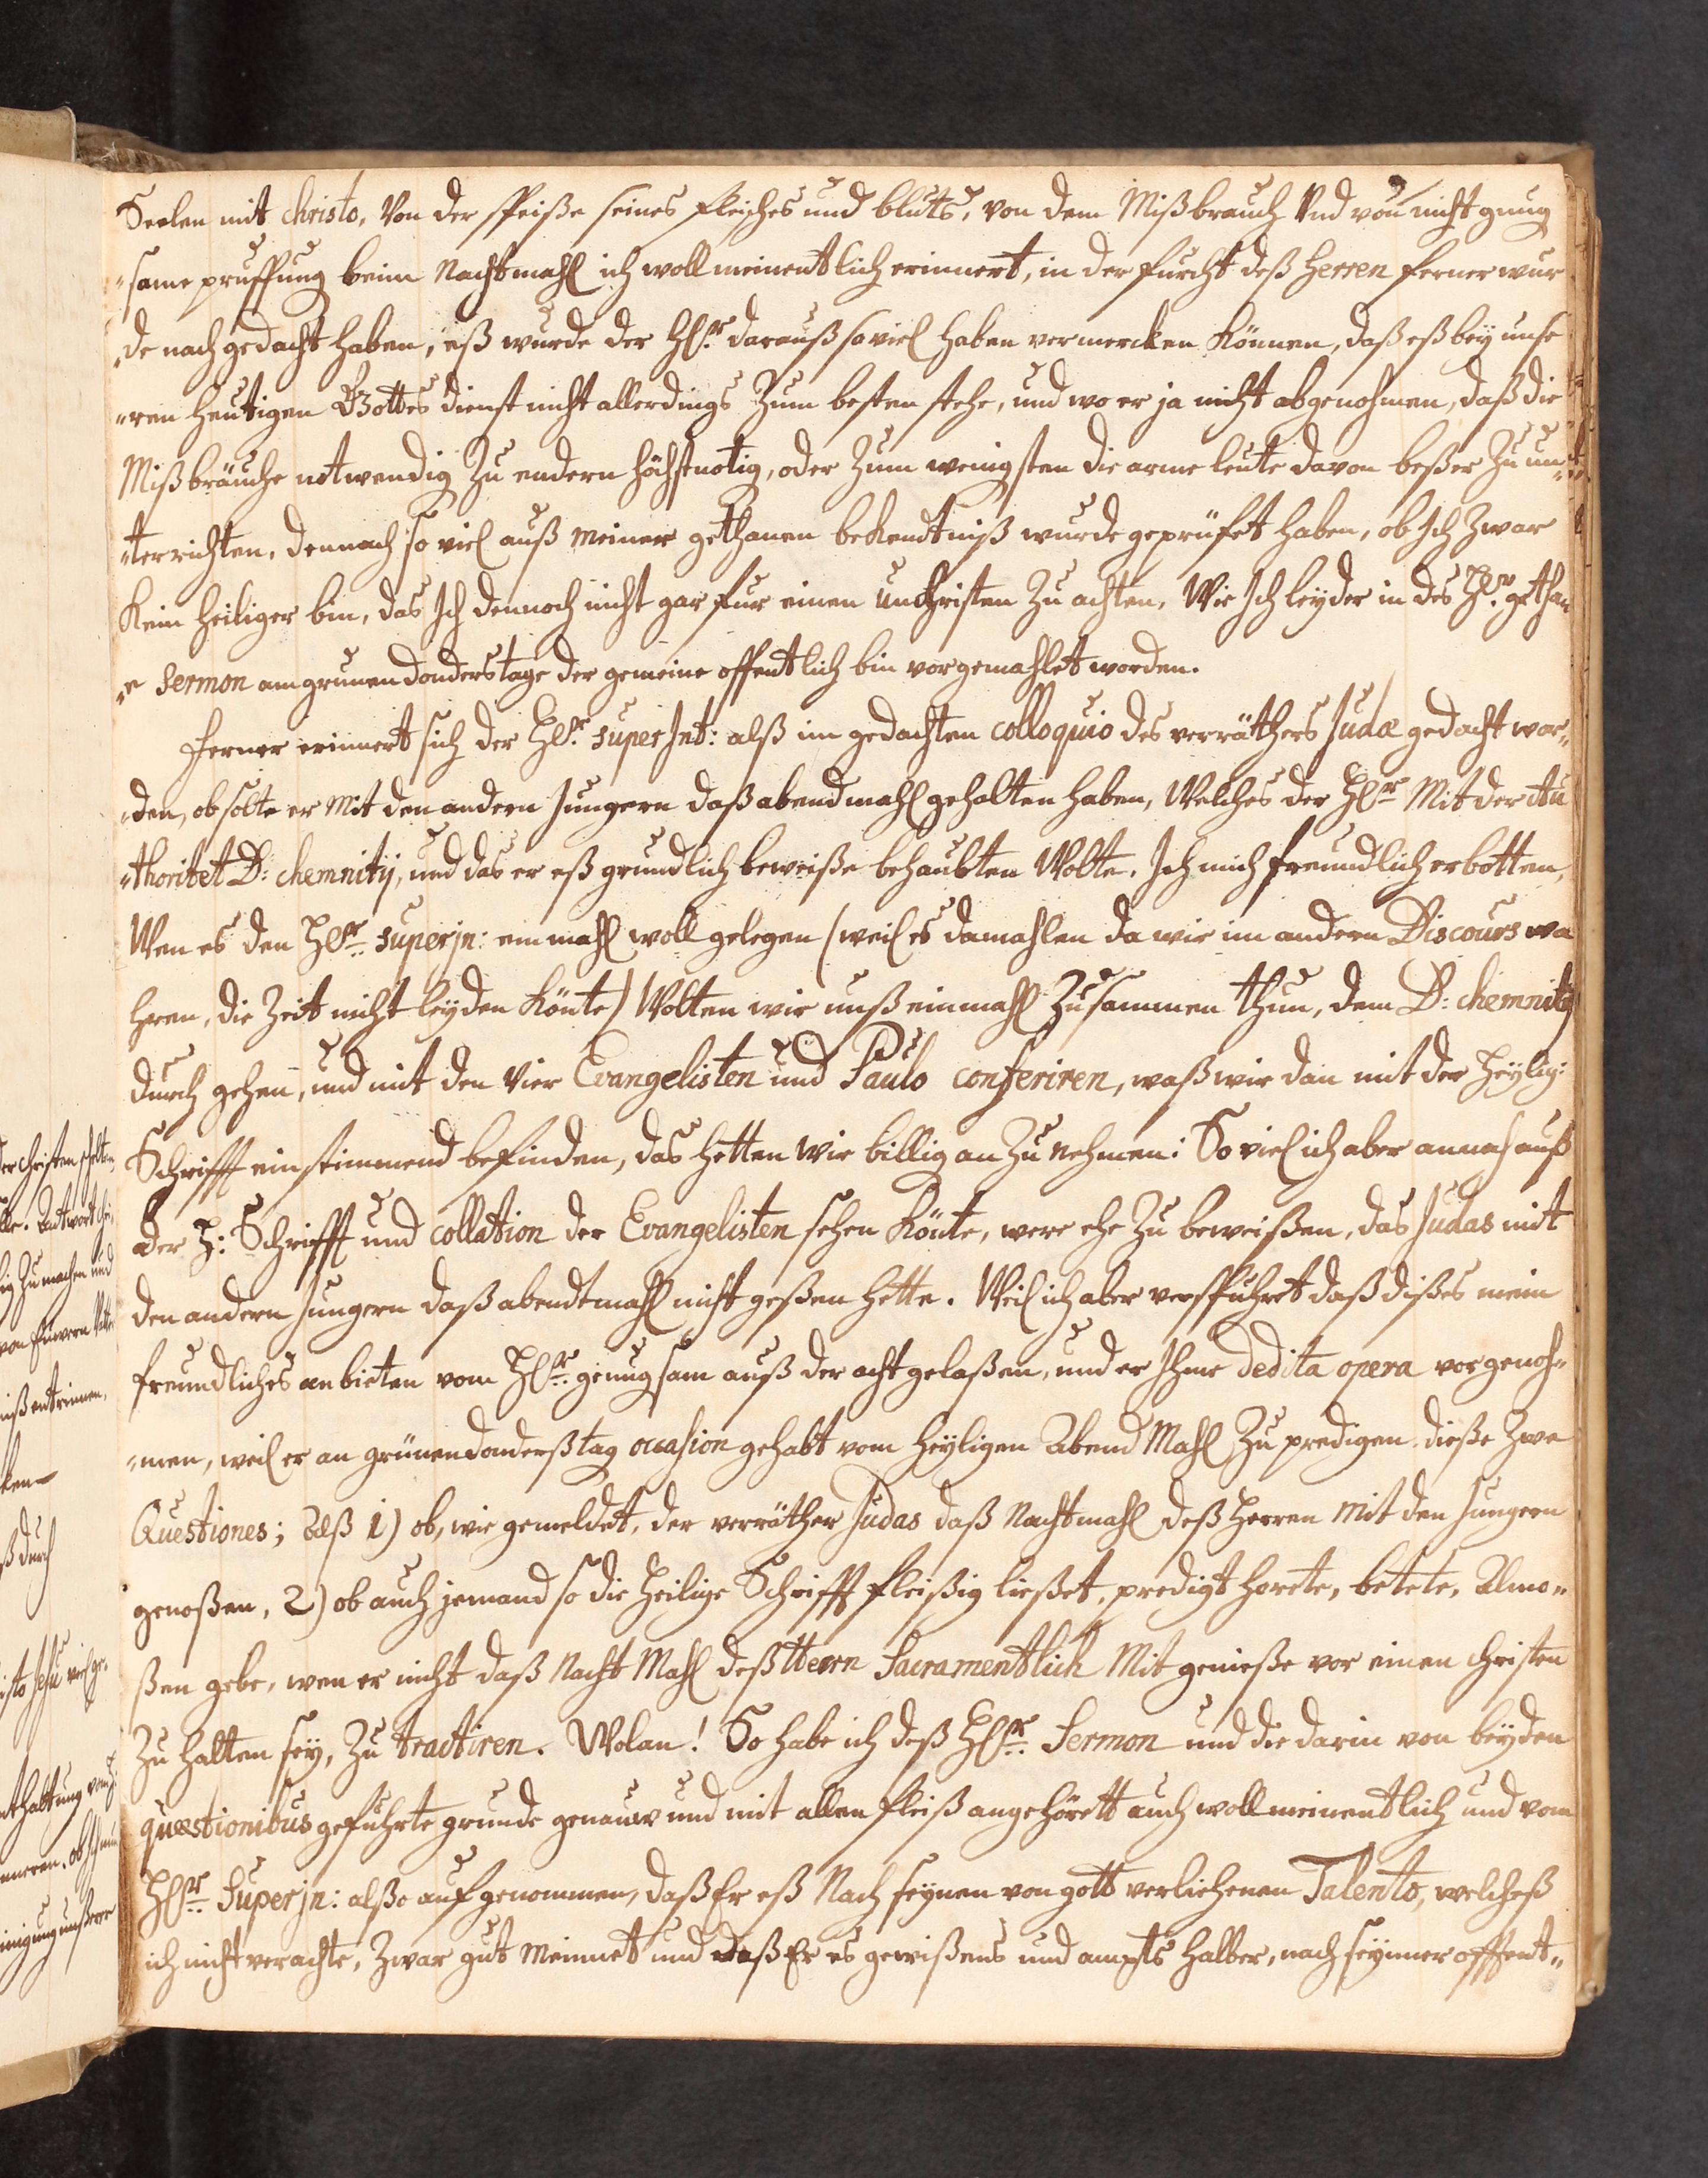 Seelen mit christo, Von der speiße seines fleisches und bluts, von dem Mißbrauch Vnd von nicht gnug
"same pruffung beim Nachtmahl ich wollmeinentlich erinnert, in der furcht deß Herren ferner wur
"de nach gedacht haben, eß wurde der Hl:sr darauß so viel haben vermercken können, daß eß bey unse
"ren heutigen Gottes dienst nicht allerdings Zum besten stehe, und wo er ja nicht abgenohmen, daß die
Mißbräuche notwendig Zu endern höchstnotig, oder Zum wenigsten die arme leute davon beßer Zu un"
"terrichten, dennoch so viel auß meiner gethanen bekendtniß wurde geprüfet haben, ob Ich Zwar
Kein heiliger bin, das Ich dennoch nicht gar fur einen unchristen Zu achten, Wie Ich leyder in des Hl:sr gethan
"e Sermon am grunen donderstage der gemeine offentlich bin vorgemahlet worden.
Ferner erinnert sich der Hl:sr superInt: alß im gedachten colloquio des verräthers Judæ gedacht wor"
"den, ob solte er Mit den andern Jungern daß abendmahl gehalten haben, Welches der Hl:sr Mit der Au
"thoritet D: chemnitij, und das er eß grundlich beweiße behaubten Wolte, Ich mich freundlich erbotten,
Wen es den Hl:sr superjn: ein mahl woll gelegen (weil es damahlen da wir im andern Discours wa
hren, die Zeit nicht leyden könte) Wolten wir unß einmahl Zusammen thun, dem D: chemnitij
durch gehen, und mit den Vier Evangelisten und Paulo conferiren, waß wir dan mit der Heylig:
Schrifft einstimmend befinden, das hetten wir billig an Zu nehmen: So viel ich aber annoch auß
der H: Schrifft und collation der Evangelisten sehen könte, were ehe Zu beweißen, das Judas mit
den andern Jungern daß abendtmahl nicht geßen hette. Weil ich aber verspühret daß dißes mein
freundliches anbieten vom Hl:sr genugsam auß der acht gelaßen, und er Ihme dedita opera vorgenoh"
"men, weil er an grünendonderßtag occasion gehabt vom heyligen Abend Mahl Zu predigen dieße Zwe
Questiones; Alß 1) ob, wie gemeldet, der verräther Judas daß Nachtmahl deß Herren mit den Jungern
genoßen, 2) ob auch jemand so die heilige Schrifft fleißig ließet, predigt horete, betete, Almo"
ßen gebe, wen er nicht daß Nacht Mahl deß Herrn Sacramentlich Mit genieße vor einen christen
Zu halten sey, Zu tractiren. Wolan! So habe ich deß Hl:sr Sermon und die darin von beyden
quæstionibus gefuhrte grunde genauw und mit allen fleiß angehörett auch wollmeinentlich und vom
Hl:sr Superjn: alßo aufgenommen, daß Er eß Nach seynen von gott verliehenen Talento, welcheß
ich nicht verachte, Zwar gut Meinnet und daß Er es gewißens und ampts halber, nach seynner offent"